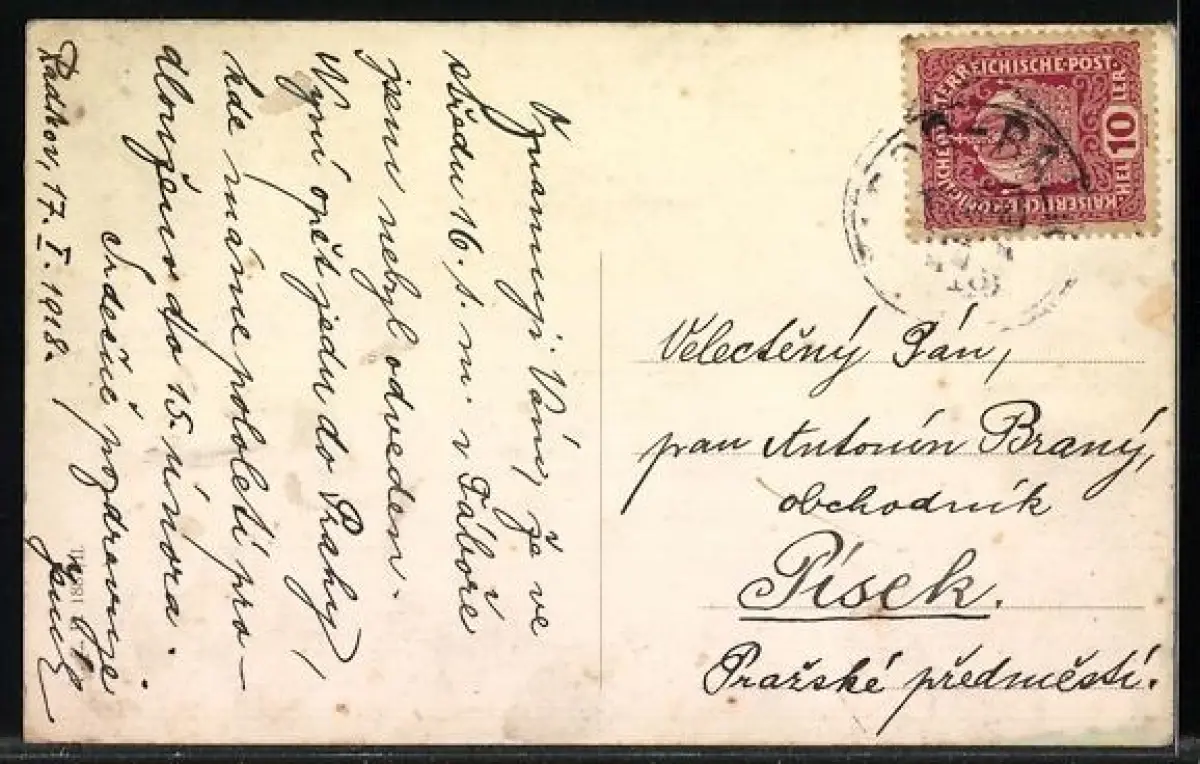 Oznamuji Vám, že ve
středu 16. s. m. v Táboře
jsem nebyl odveden.
Nyní opět jedu do Prahy,
kde máme pololetí pro-
dlouženo do 15. února.
Srdečně pozdravuje
Radkov, 17. I. 1918.
KAISERLICHE KÖNIGLICHE ÖSTERREICHISCHE POST
10 HELLER
Velectěný Pán,
pan Antonín Braný,
obchodník
Písek.
Pražské předměstí.